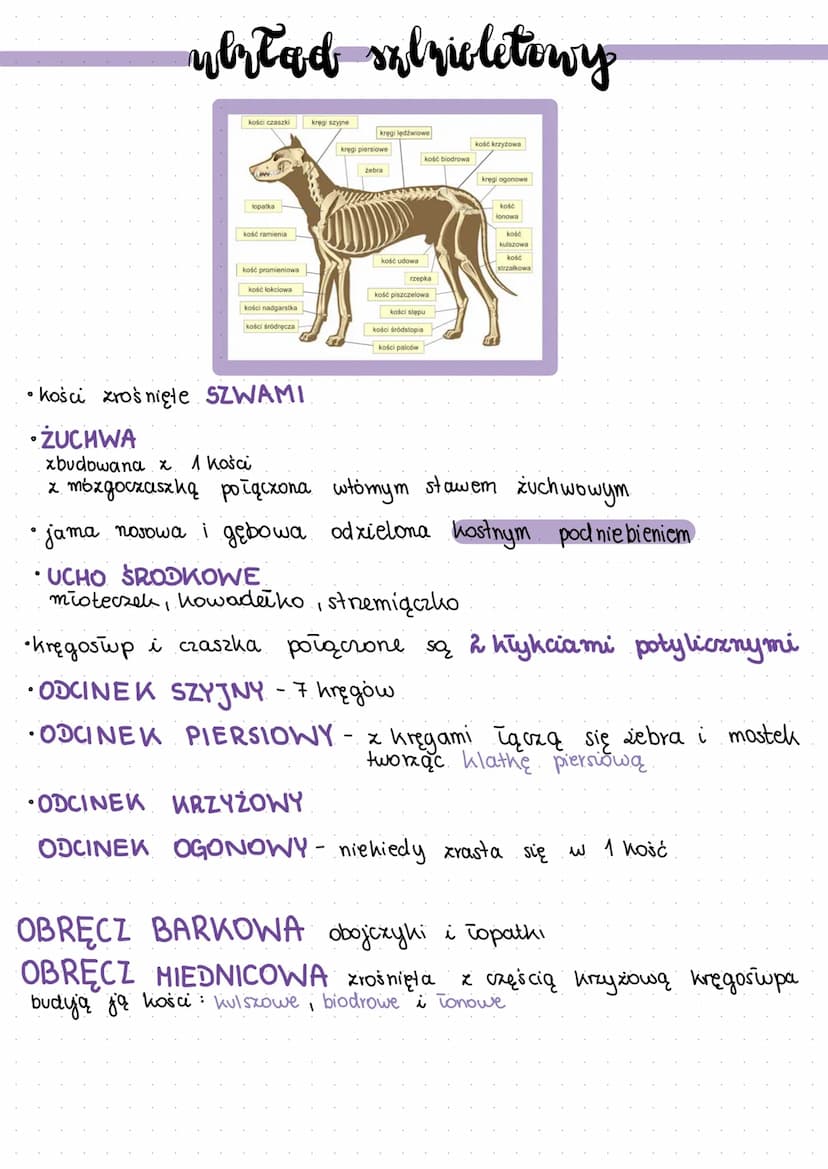 układ szkieletowy
kości czaszki
kręgi szyjne
kręgi lędźwiowe
kość krzyżowa
kręgi piersiowe
kość biodrowa
żebra
kręgi ogonowe
łopatka
kość łonowa
kość ramienia
kość kulszowa
kość udowa
kość strzałkowa
kość promieniowa
rzepka
kość łokciowa
kość piszczelowa
kości nadgarstka
kości stępu
kości śródręcza
kości śródstopia
kości palców
• kości zrośnięte SZWAMI
• ŻUCHWA
zbudowana z 1 kości
z mózgoczaszką połączona wtórnym stawem żuchwowym
• jama nosowa i gębowa odzielona kostnym podniebieniem
• UCHO ŚRODKOWE
młoteczek, kowadełko, strzemiączko
• kręgosłup i czaszka połączone są 2 kłykciami potylicznymi
• ODCINEK SZYJNY - 7 kręgów
• ODCINEK PIERSIOWY - z kręgami łączą się żebra i mostek
tworząc klatkę piersiową
• ODCINEK KRZYŻOWY
ODCINEK OGONOWY - niekiedy zrasta się w 1 kość
OBRĘCZ BARKOWA obojczyki i łopatki
OBRĘCZ MIEDNICOWA zrośnięta z częścią krzyżową kręgosłupa
budują ją kości: kulszowe, biodrowe i łonowe